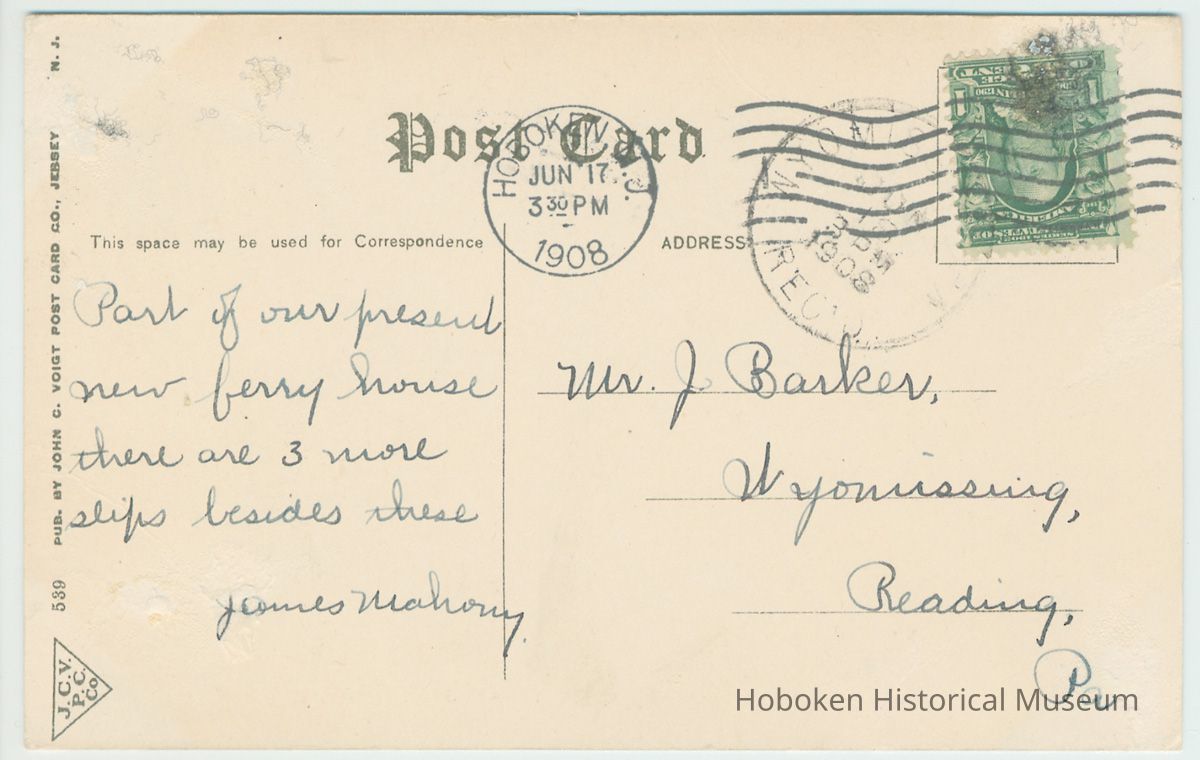 Post Card
HOBOKEN, N.J.
JUN 17
3 30 PM
1908
WYOMISSING
1908
REC'D.
This space may be used for Correspondence
ADDRESS
Part of our present
new ferry house
there are 3 more
slips besides these
James Mahony.
Mr. J Barker,
Wyomissing,
Reading,
Pa
PUB. BY JOHN C. VOIGT POST CARD CO., JESSEY N. J.
539
J. C. V.
P. C.
Co
Hoboken Historical Museum